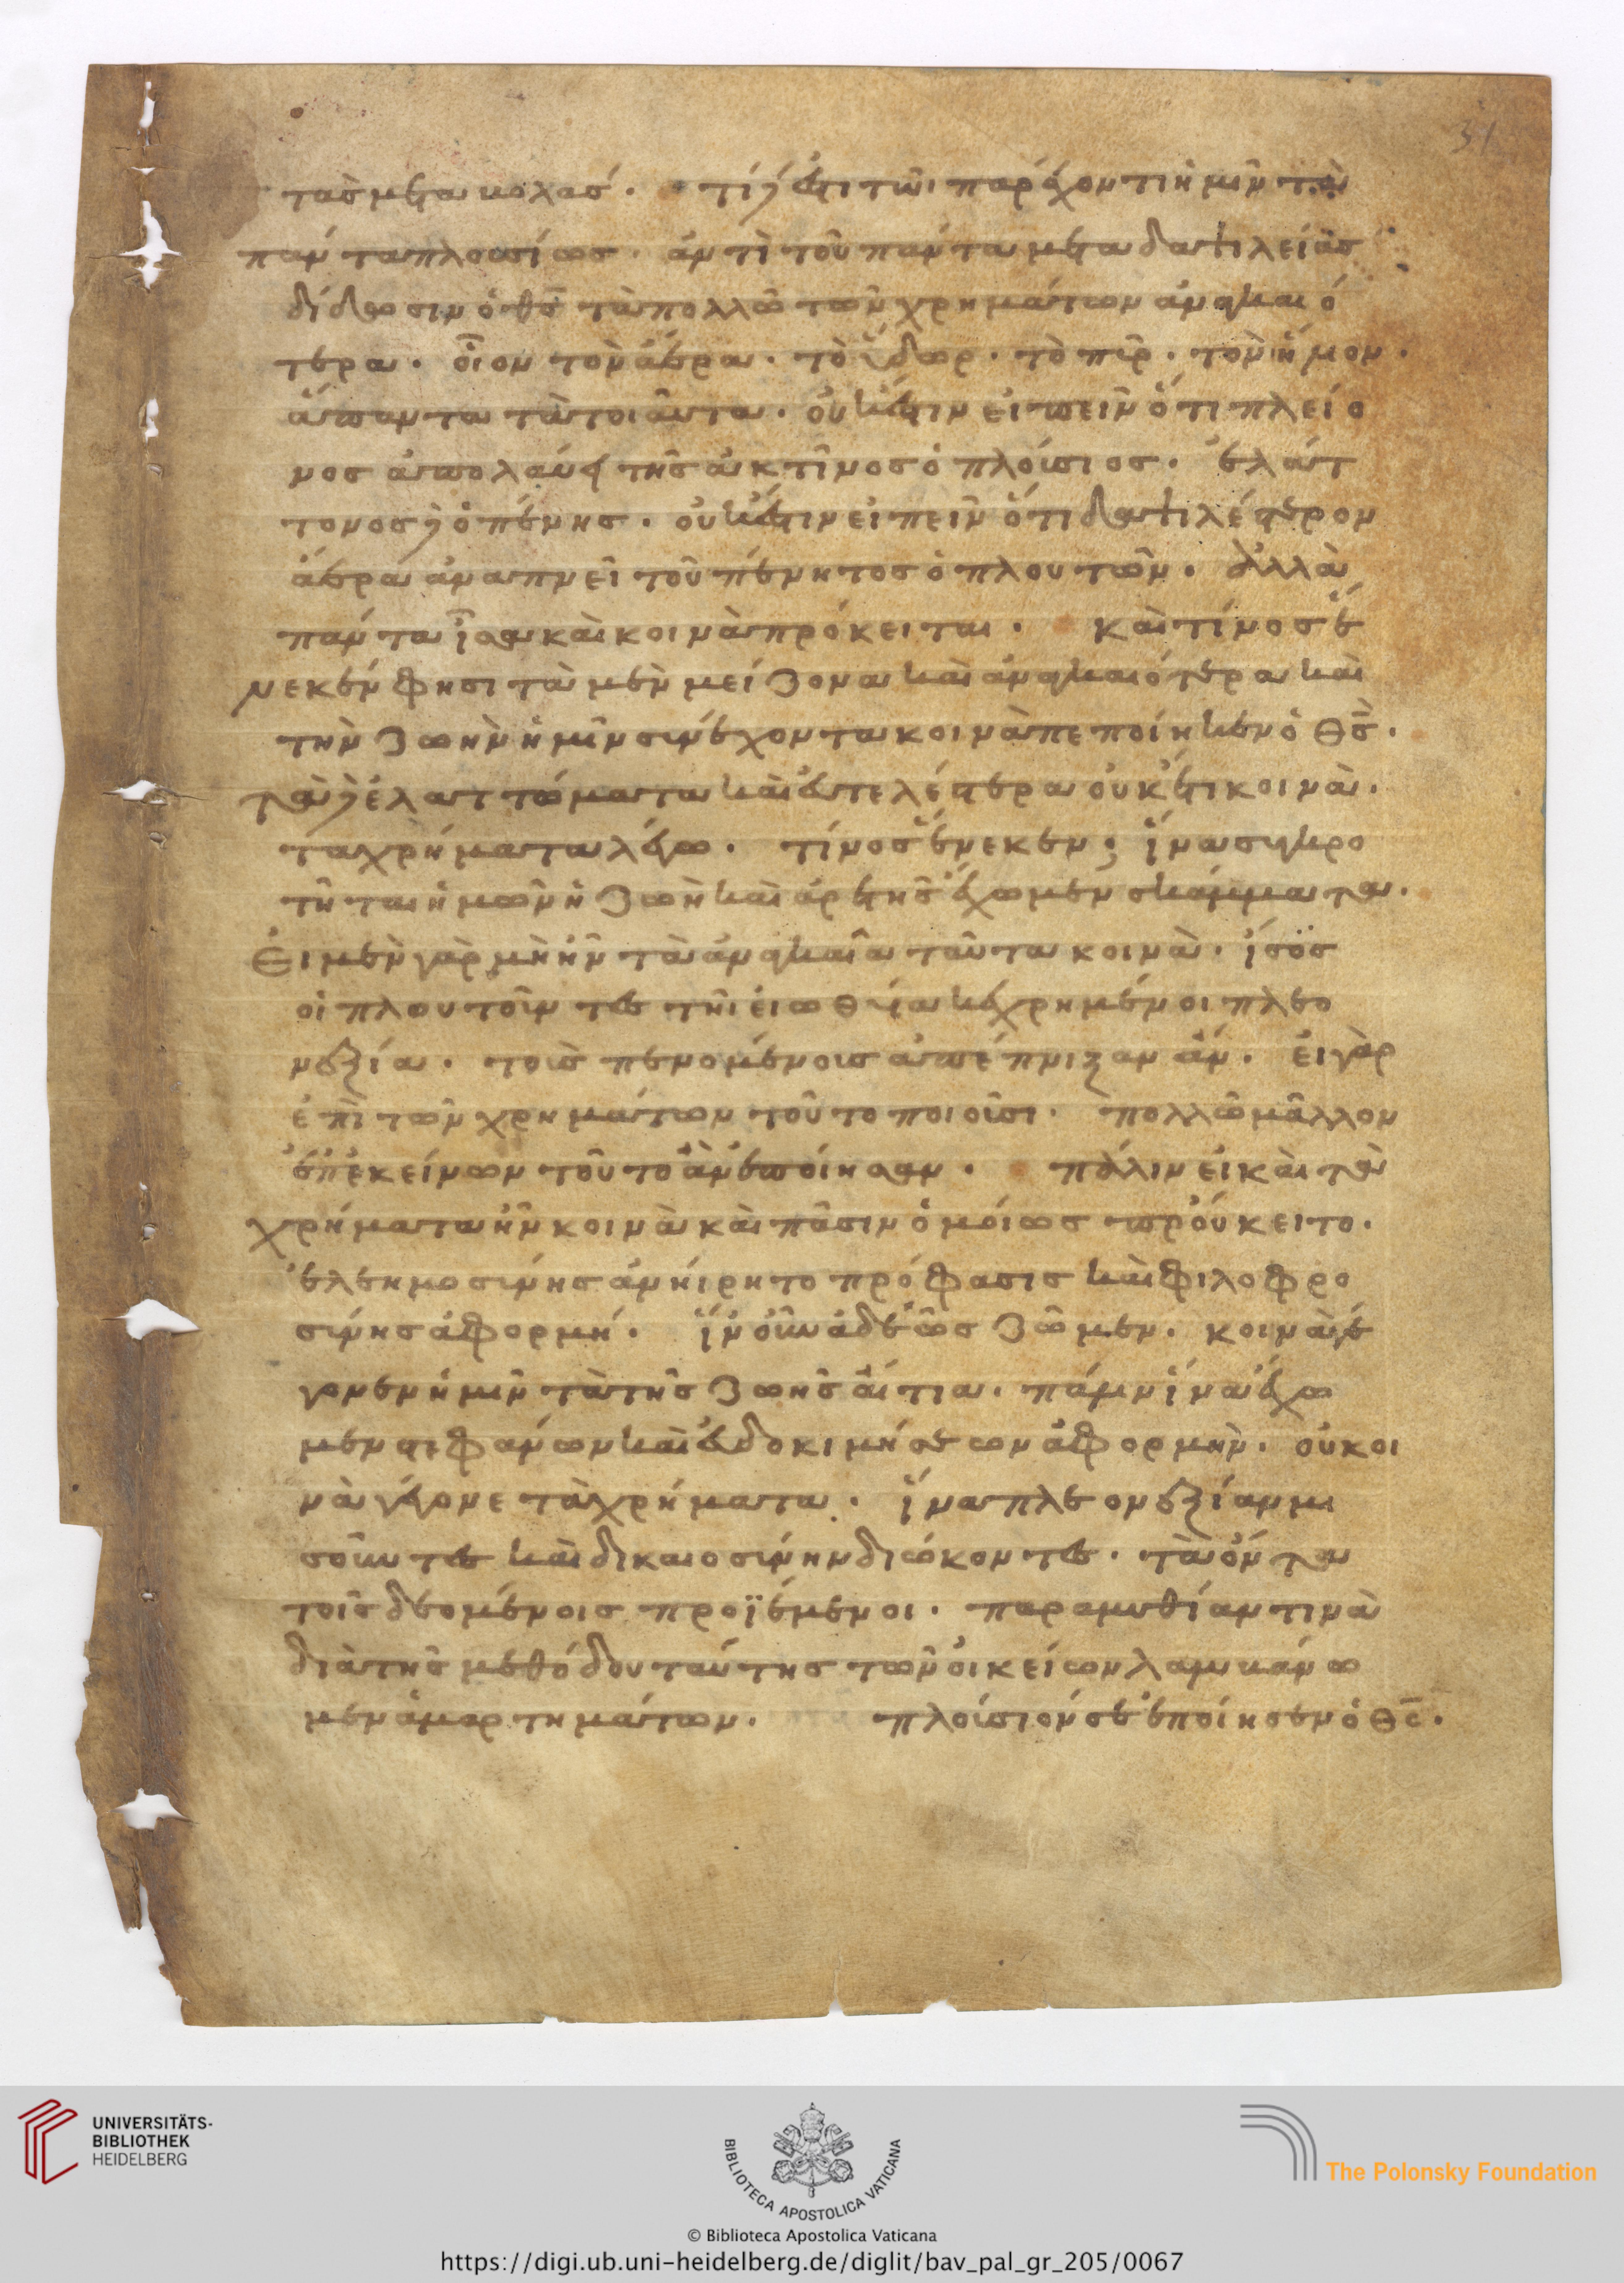 31
τὰς μεταβολάς. τί ἐστι τῶ παρέχοντι ἡμῖν τὰ
πάντα πλουσίως. ἀντὶ τοῦ πάντα μετὰ δαψιλείας
δίδωσιν ὁ θ̅ς̅ τὰ πολλῶ τῶν χρημάτων ἀναγκαιό
τερα. οἷον τὸν ἀέρα. τὸ ὕδωρ. τὸ πῦρ. τὸν ἥλιον.
ἅπαντα τὰ τοιαῦτα. οὐκ ἔστιν εἰπεῖν ὅτι πλείο
νος ἀπολαύει τῆς ἀκτῖνος ὁ πλούσιος. ἐλάτ
τονος δὲ ὁ πένης. οὐκ ἔστιν εἰπεῖν ὅτι δαψιλέστερον
ἀέρα ἀναπνεῖ τοῦ πένητος ὁ πλουτῶν. ἀλλὰ
πάντα ἴσα καὶ κοινὰ πρόκειται. καὶ τίνος ἕ
νεκέν φησι τὰ μὲν μείζονα καὶ ἀναγκαιότερα καὶ
τὴν ζωὴν ἡμῖν συνέχοντα κοινὰ πεποίηκεν ὁ θ̅ς̅.
τὰ δὲ ἐλαττώματα καὶ εὐτελέστερα οὐκ ἔστι κοινὰ.
τα χρήματα λέγω. τίνος ἕνεκεν; ἵνα συγκρο
τῆται ἡμῶν ἡ ζωὴ καὶ ἀρετῆς ἔχωμεν σκάμματα.
Εἰ μὲν γὰρ μὴ ἦν τὰ ἀναγκαῖα ταῦτα κοινὰ. ἴσως
οἱ πλουτοῦντες τῆι εἰωθυία κεχρημένοι πλεο
νεξία. τοὺς πενομένους ἀπέπνιξαν ἄν. εἰ γὰρ
ἐπὶ τῶν χρημάτων τοῦτο ποιοῦσι. πολλῶ μᾶλλον
ἐπ' ἐκείνων τοῦτο ἂν ἐποίησαν. πάλιν εἰ καὶ τὰ
χρήματα ἦν κοινὰ καὶ πᾶσιν ὁμοίως προύκειτο.
ἐλεημοσύνης ἀνήιρητο πρόφασις καὶ φιλοφρο
σύνης ἀφορμή. ἵν' οὖν ἀδεῶς ζῶμεν. κοινὰ γέ
γονεν ἡμῖν τὰ τῆς ζωῆς αἴτια. πάλιν ἵνα ἔχω
μεν στεφάνων καὶ εὐδοκιμήσεων ἀφορμὴν. οὐ κοι
νὰ γέγονε τὰ χρήματα. ἵνα πλεονεξίαν μι
σοῦντες καὶ δικαιοσύνην διώκοντες. τὰ ὄντα
τοῖς δεομένοις προϊέμενοι. παραμυθίαν τινὰ
διὰ τῆς μεθόδου ταύτης τῶν οἰκείων λαμβάνω
μεν ἁμαρτημάτων. πλούσιόν σε ἐποίησεν ὁ θ̅ς̅.
UNIVERSITÄTS-
BIBLIOTHEK
HEIDELBERG
BIBLIOTECA APOSTOLICA VATICANA
The Polonsky Foundation
© Biblioteca Apostolica Vaticana
https://digi.ub.uni-heidelberg.de/diglit/bav_pal_gr_205/0067